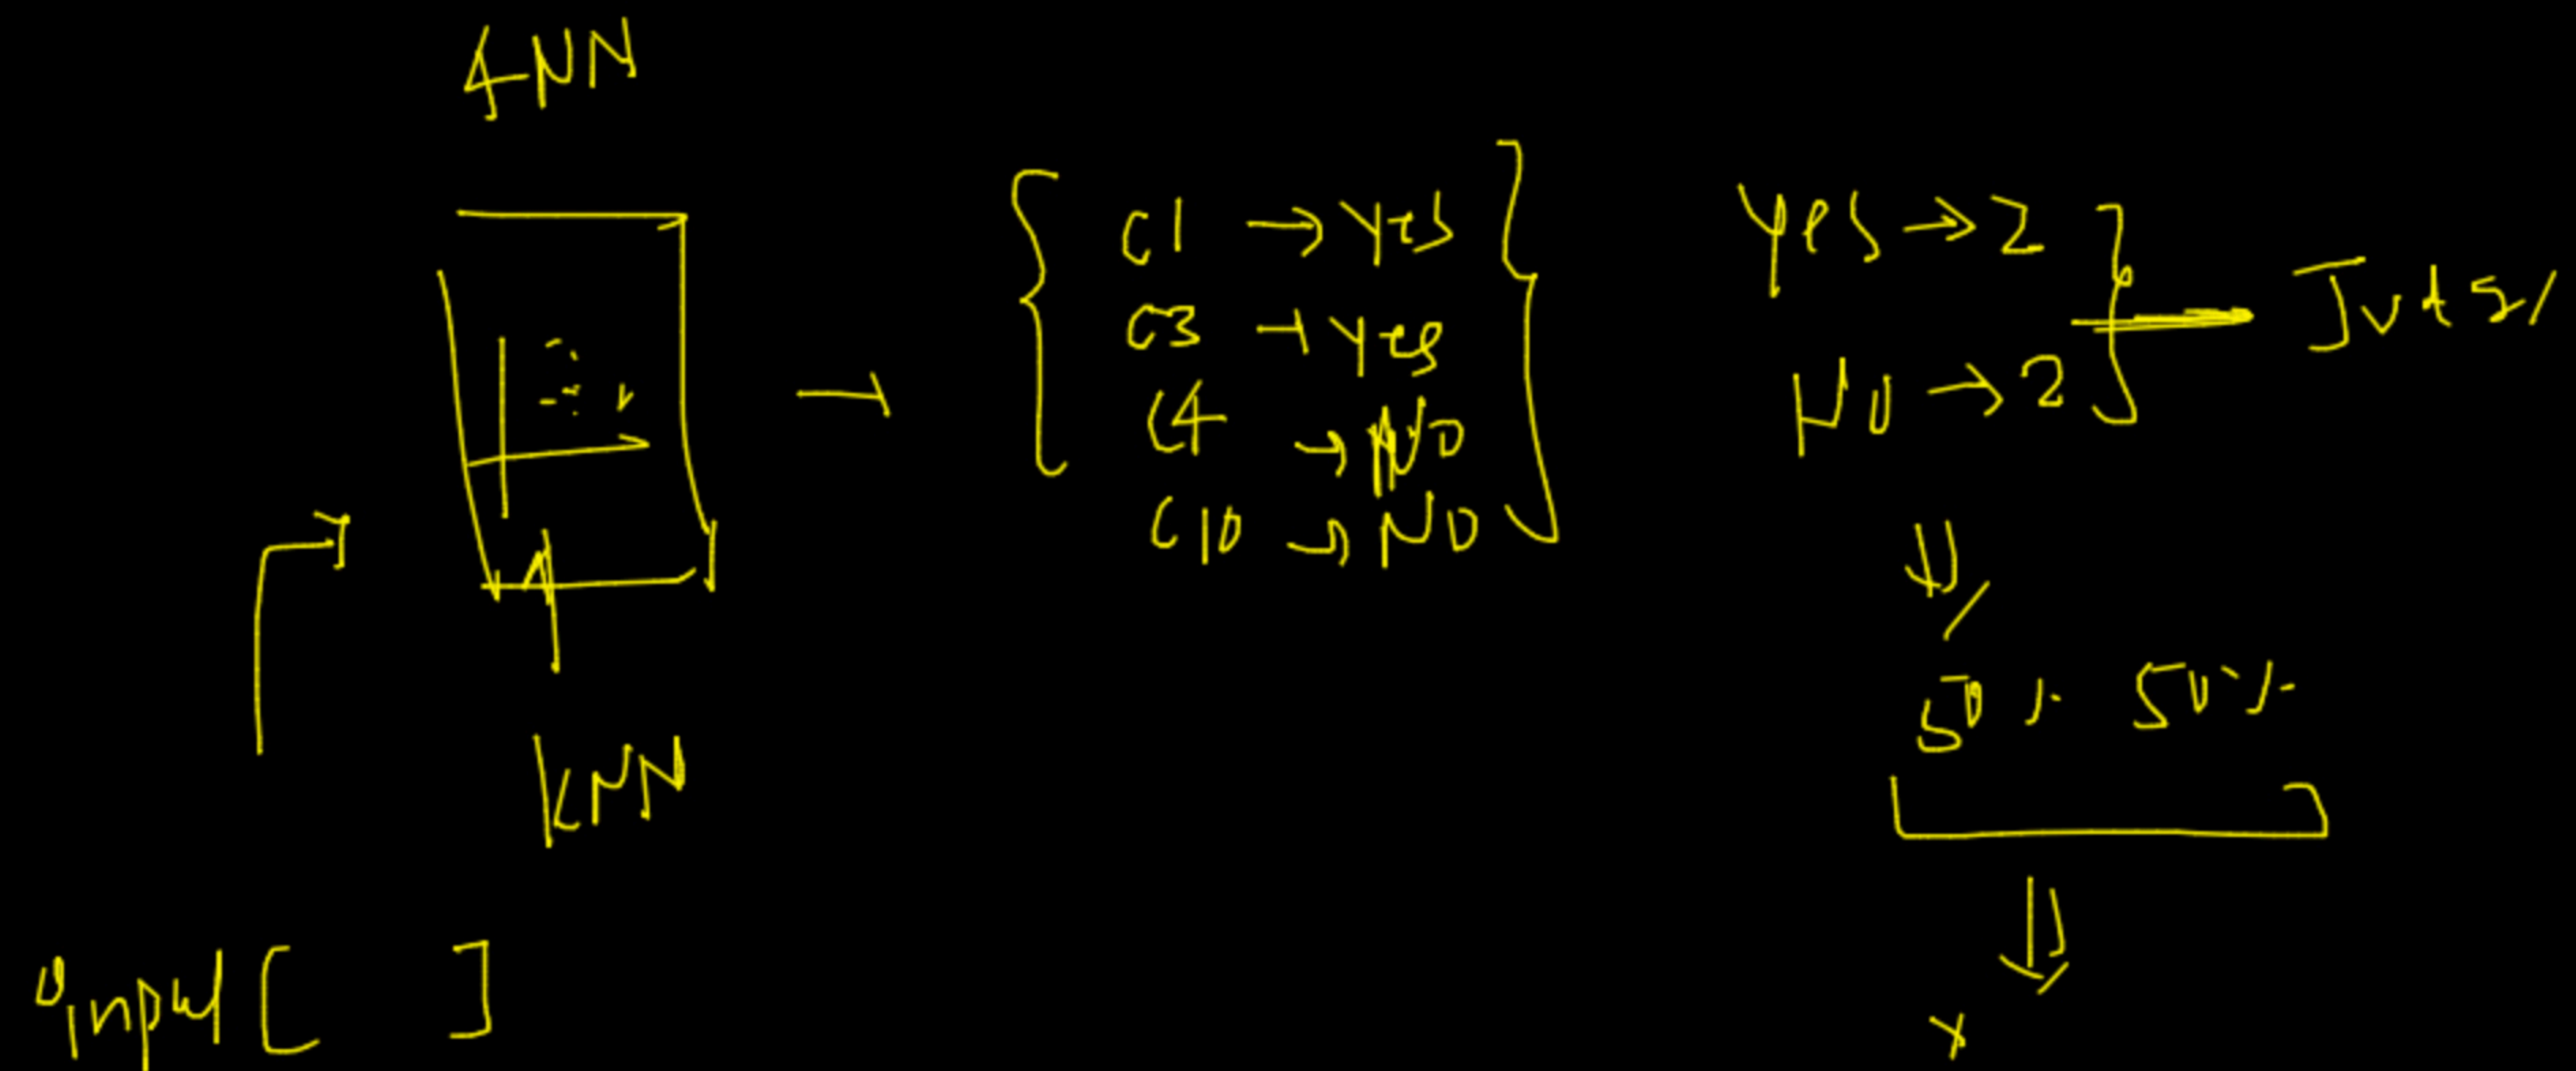 4NN
C1 → Yes
C3 → Yes
C4 → NO
C10 → NO
Yes → 2
NO → 2
50% 50%
KNN
input [ ]
x